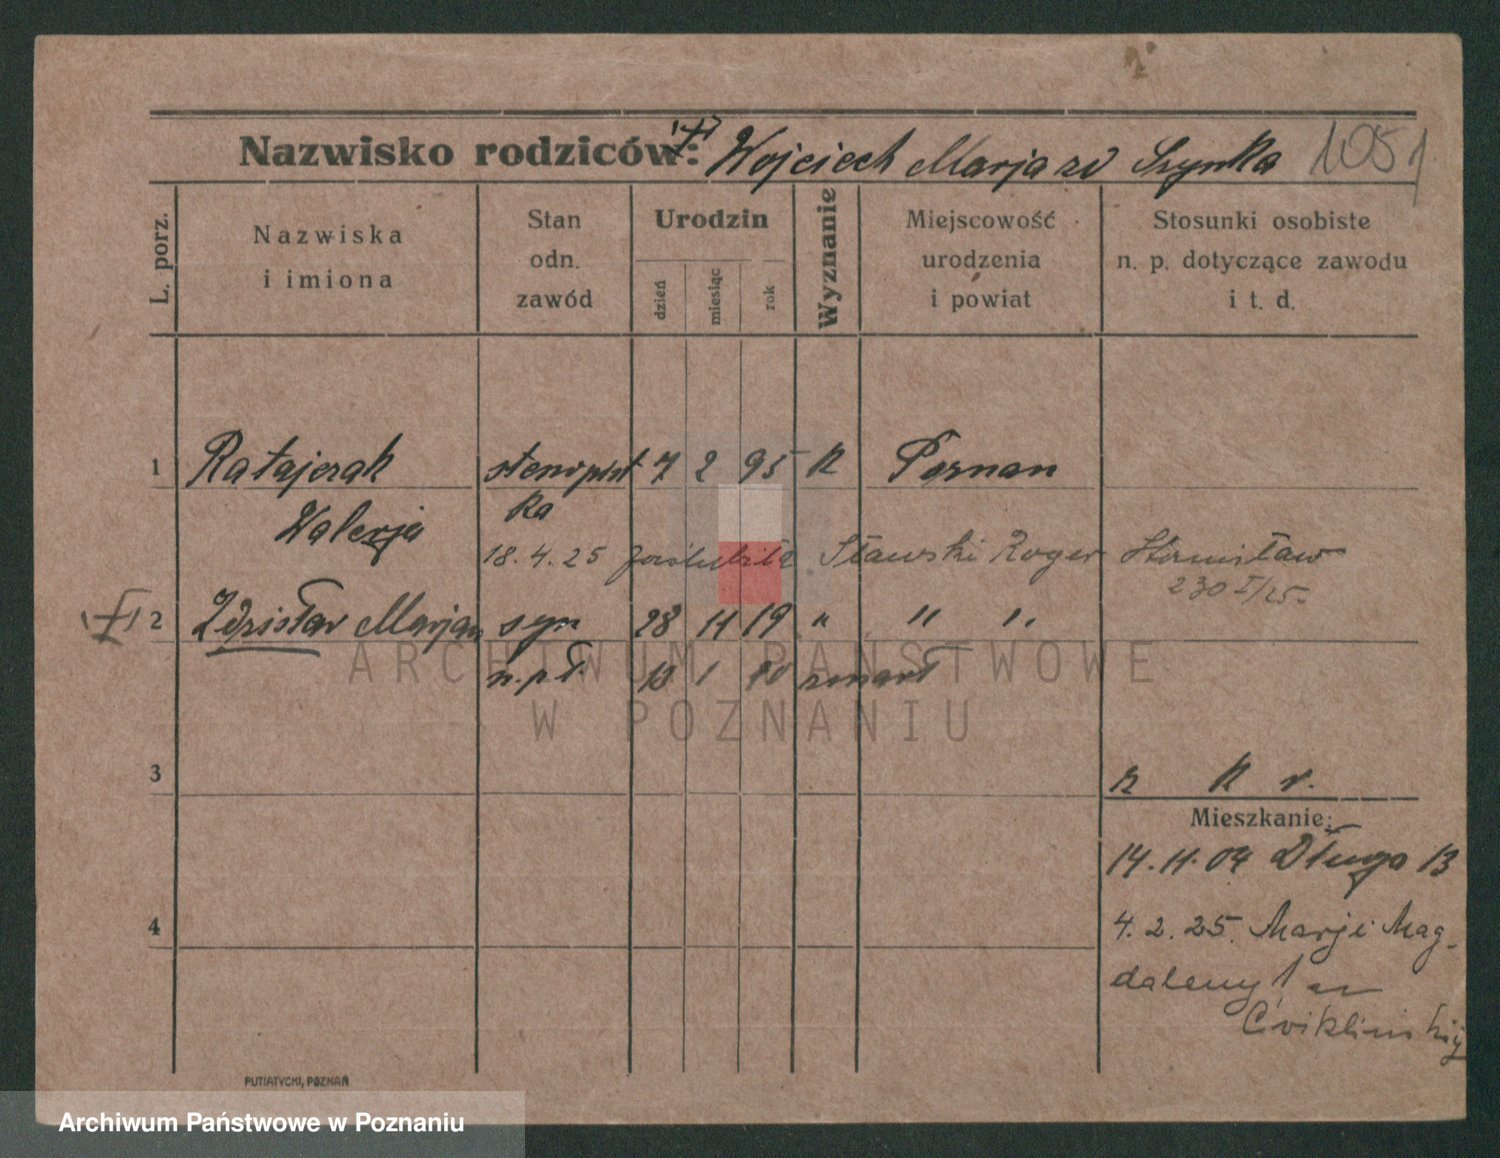 Nazwisko rodziców: Wojciech Marja zd Szynka 1051
L. porz.
Nazwiska i imiona
Stan odn. zawód
Urodzin
dzień
miesiąc
rok
Wyznanie
Miejscowość urodzenia i powiat
Stosunki osobiste n. p. dotyczące zawodu i t. d.
1 Ratajczak stenopist 7 2 95 K Poznan
Walerja ka
18.4.25 poślubiła Stawski Roger Stanisław
230 I/25.
2 Zdzisław Marjan syn 28 11 19 " " "
n. pł. 13 1 20 zmarł
3
K r.
Mieszkanie:
14.11.04 Długa 13
4
4.2.25. Marji Mag-
daleny 1
PUTIATYCKI, POZNAŃ
ARCHIWUM PAŃSTWOWE
W POZNANIU
Archiwum Państwowe w Poznaniu